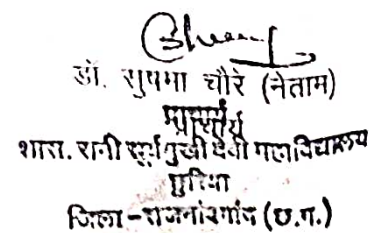 डॉ. सुषमा चौरे (नेताम)
प्राचार्य
शास. रानी सूर्यमुखी देवी महाविद्यालय
छुरिया
जिला - राजनांदगांव (छ.ग.)